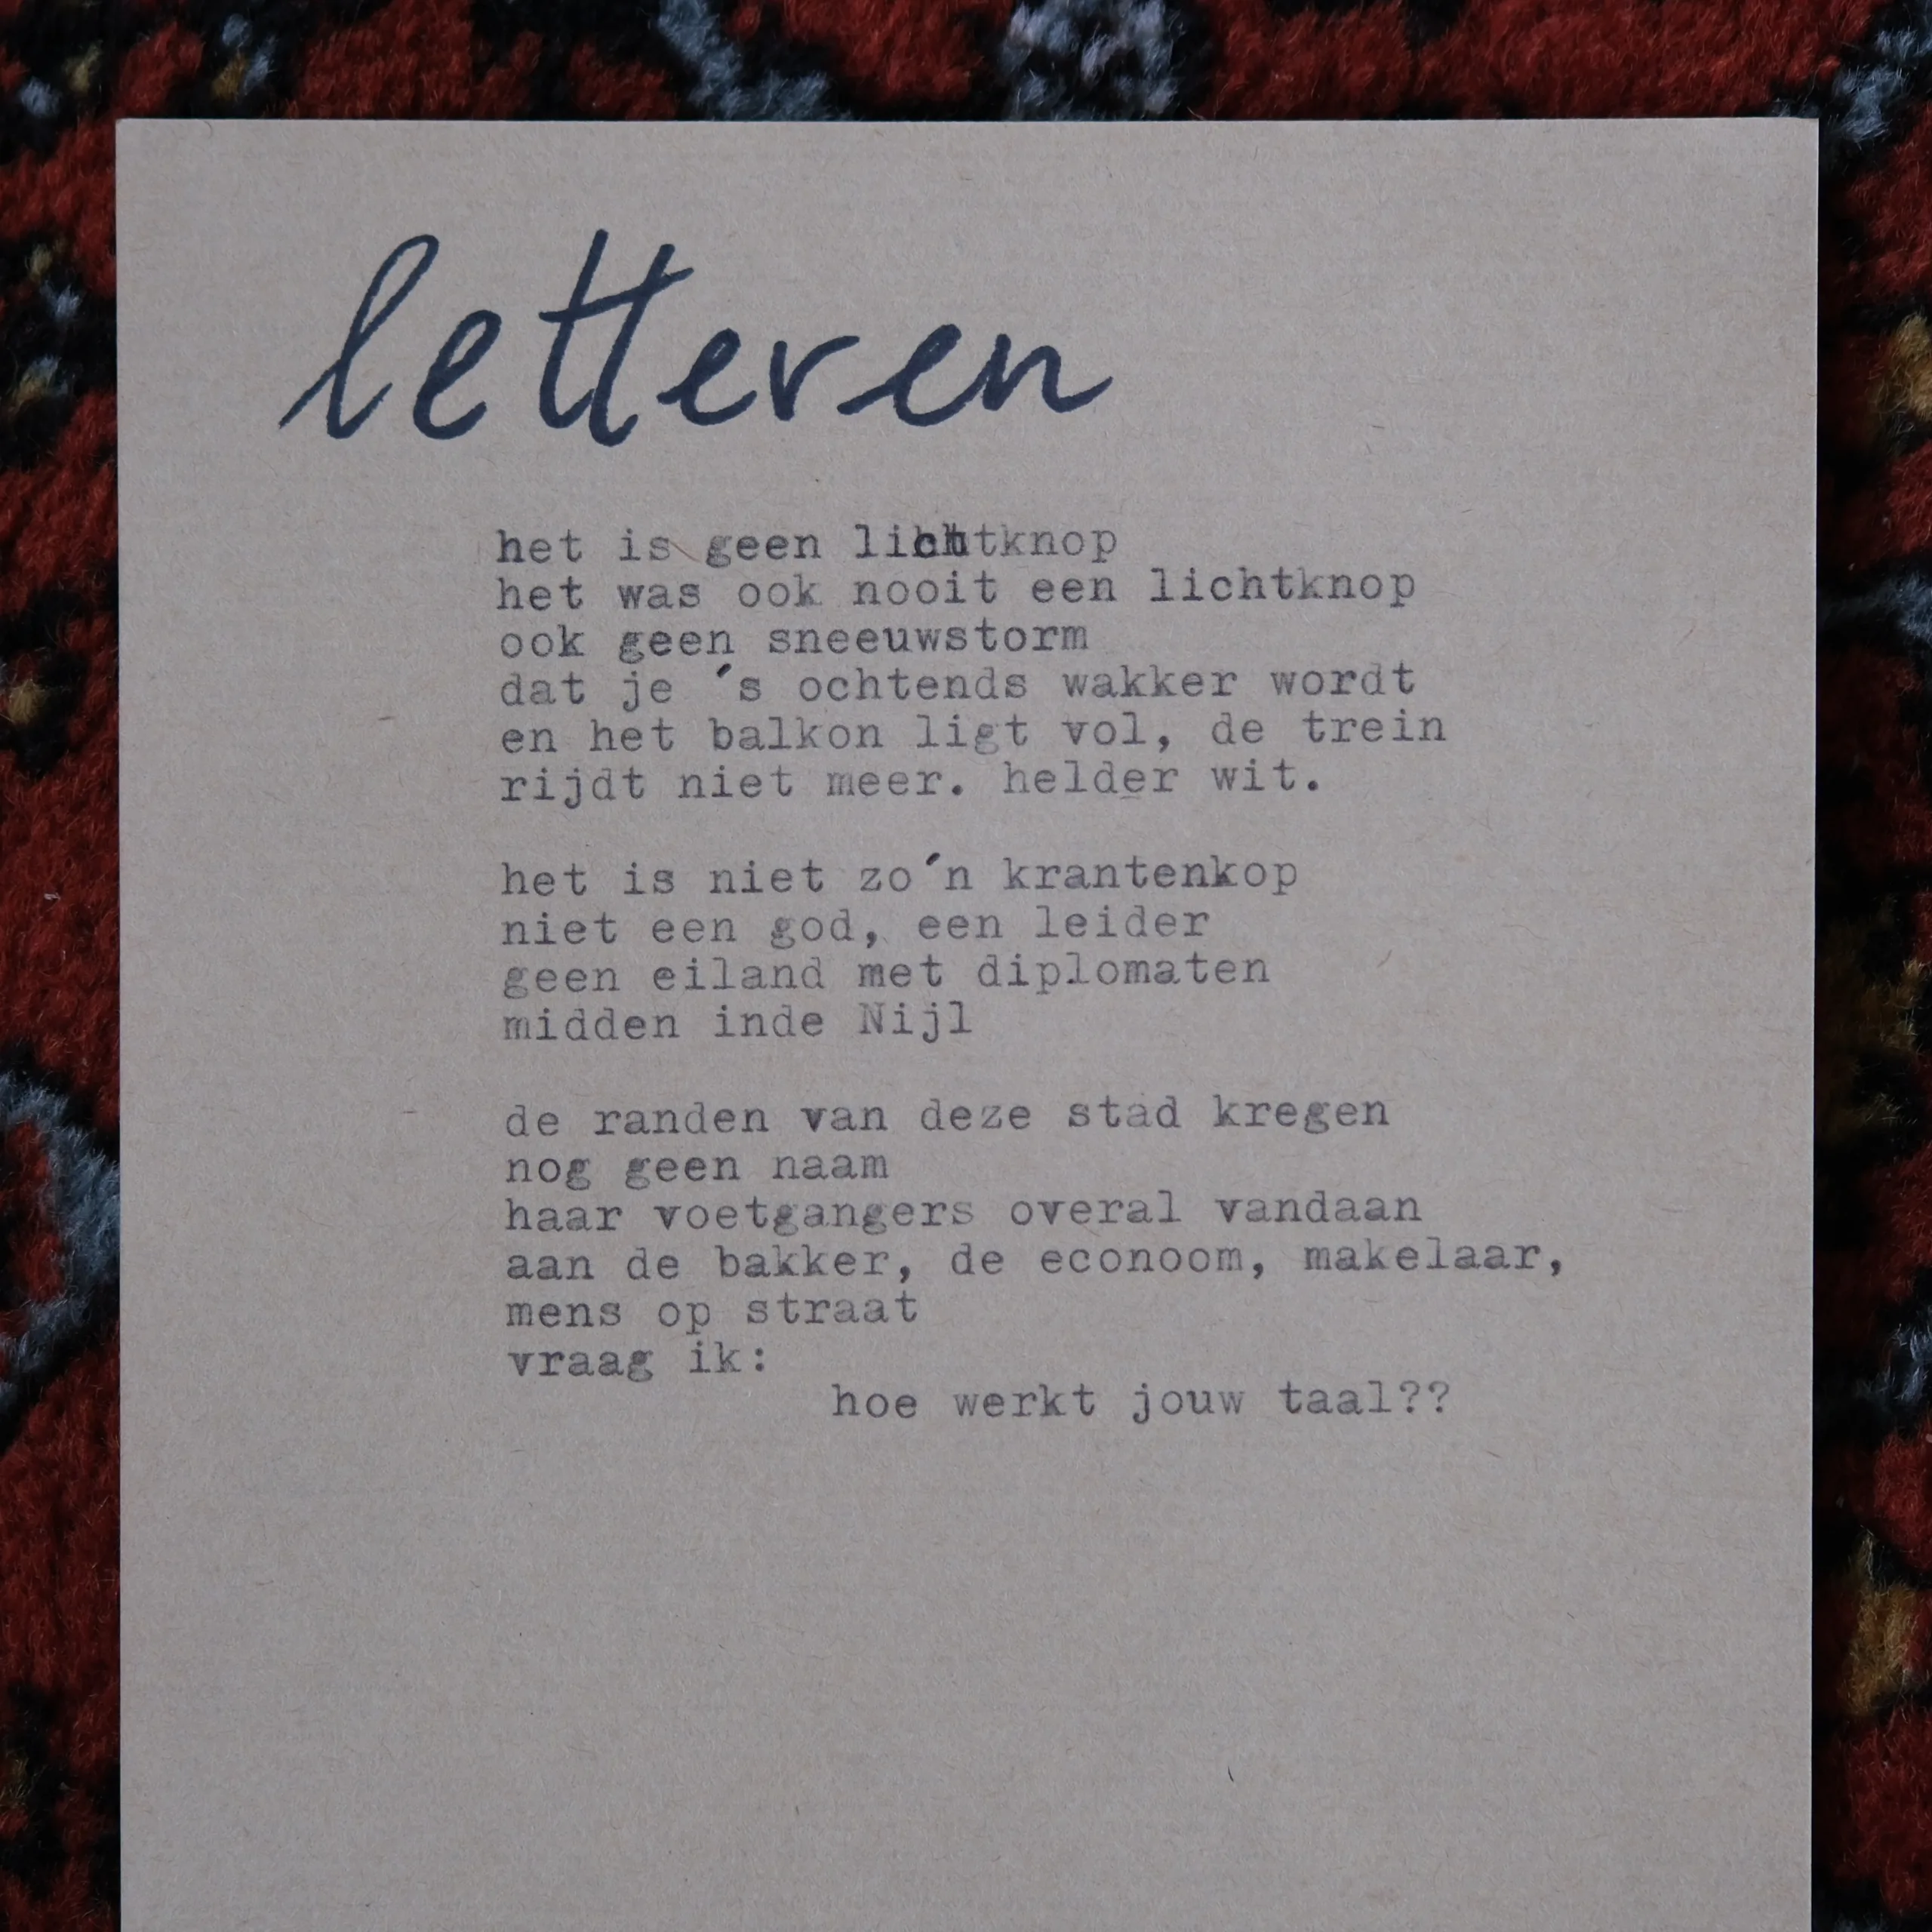 letteren
het is geen lichtknop
het was ook nooit een lichtknop
ook geen sneeuwstorm
dat je ´s ochtends wakker wordt
en het balkon ligt vol, de trein
rijdt niet meer. helder wit.
het is niet zo´n krantenkop
niet een god, een leider
geen eiland met diplomaten
midden inde Nijl
de randen van deze stad kregen
nog geen naam
haar voetgangers overal vandaan
aan de bakker, de econoom, makelaar,
mens op straat
vraag ik:
hoe werkt jouw taal??